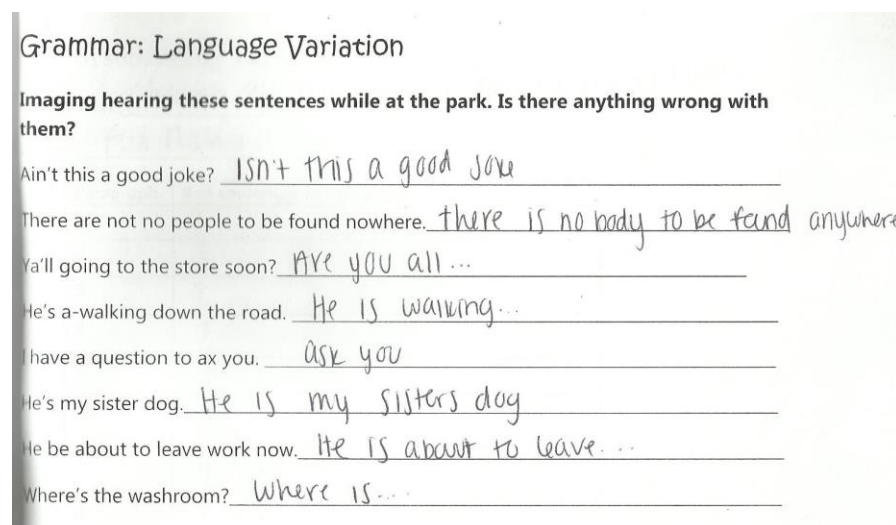 Grammar: Language Variation
Imaging hearing these sentences while at the park. Is there anything wrong with
them?
Ain't this a good joke? Isn't this a good joke
There are not no people to be found nowhere. there is no body to be found anywhere
Ya'll going to the store soon? Are you all ...
He's a-walking down the road. He is walking...
I have a question to ax you. ask you
He's my sister dog. He is my sisters dog
He be about to leave work now. He is about to leave. ...
Where's the washroom? Where is....